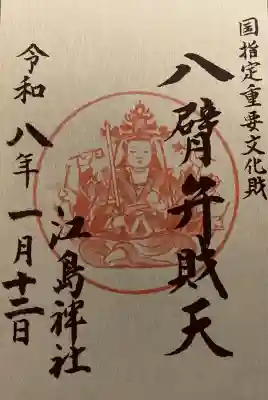 国指定重要文化財
八臂弁財天
江島神社
令和八年一月十二日